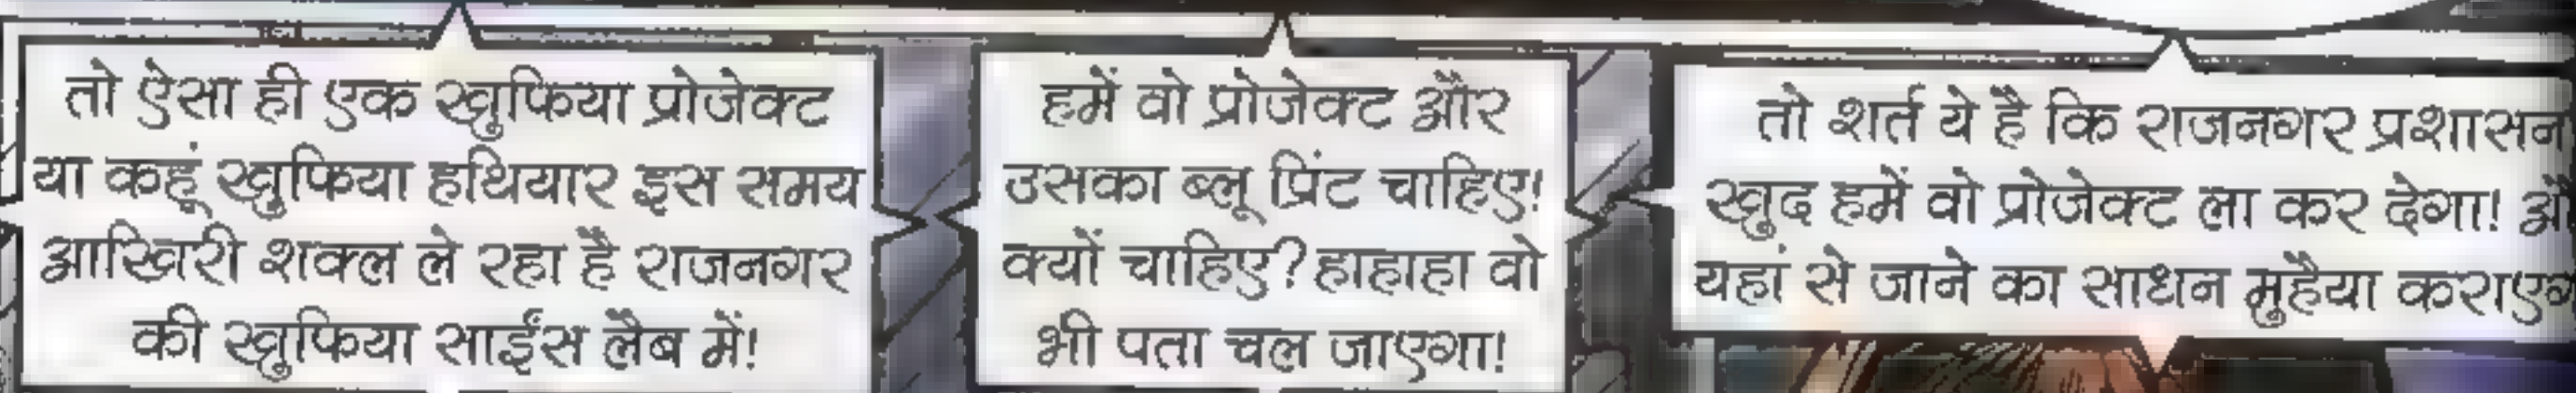 तो ऐसा ही एक खुफिया प्रोजेक्ट
या कहूं खुफिया हथियार इस समय
आखिरी शक्ल ले रहा है राजनगर
की खुफिया साईंस लैब में!
हमें वो प्रोजेक्ट और
उसका ब्लू प्रिंट चाहिए!
क्यों चाहिए? हाहाहा वो
भी पता चल जाएगा!
तो शर्त ये है कि राजनगर प्रशासन
खुद हमें वो प्रोजेक्ट ला कर देगा!
यहां से जाने का साधन मुहैया